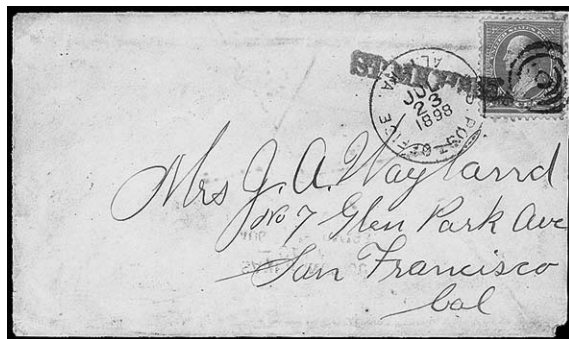 POST OFFICE
JUL
23
1898
Mrs J. A. Wayland
No 7 Glen Park Ave
San Francisco
Cal